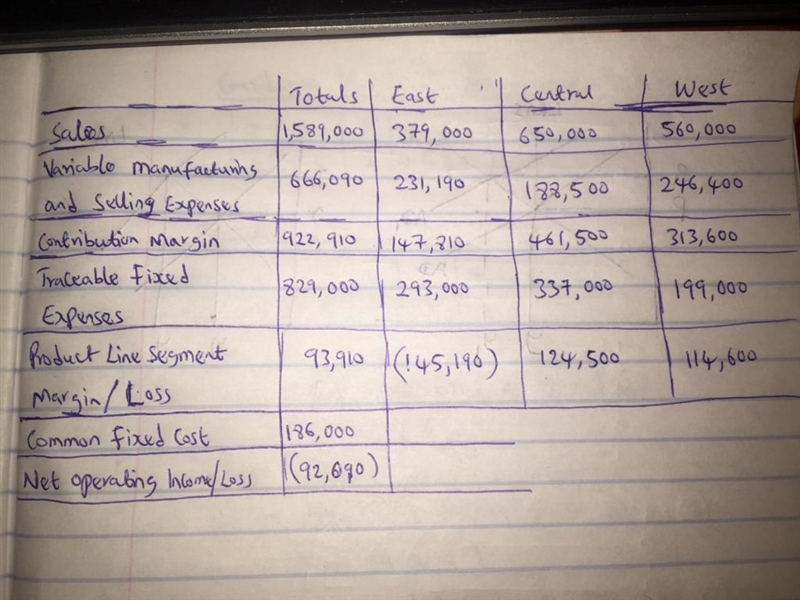 Totals East Central West
Sales 1,589,000 379,000 650,000 560,000
Variable Manufacturing
and Selling Expenses 666,090 231,190 188,500 246,400
Contribution Margin 922,910 147,810 461,500 313,600
Traceable Fixed
Expenses 829,000 293,000 337,000 199,000
Product Line Segment
Margin/Loss 93,910 (145,190) 124,500 114,600
Common Fixed Cost 186,000
Net operating Income/Loss (92,090)